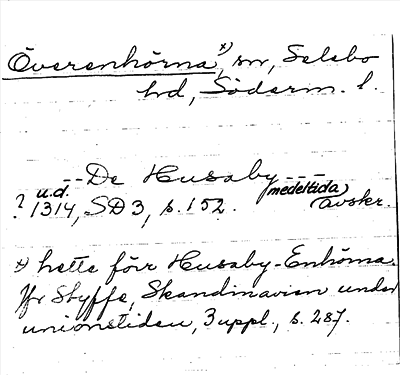 Överenhörna x), sn, Selebo
hd, Söderm. l.
-- De Husaby ---
? u.d. 1314, SD 3, s. 152. (medeltida) avskr.
x) hette förr Husaby-Enhörna.
Jfr Styffe, Skandinavien under
unionstiden, 3 uppl., s. 287.